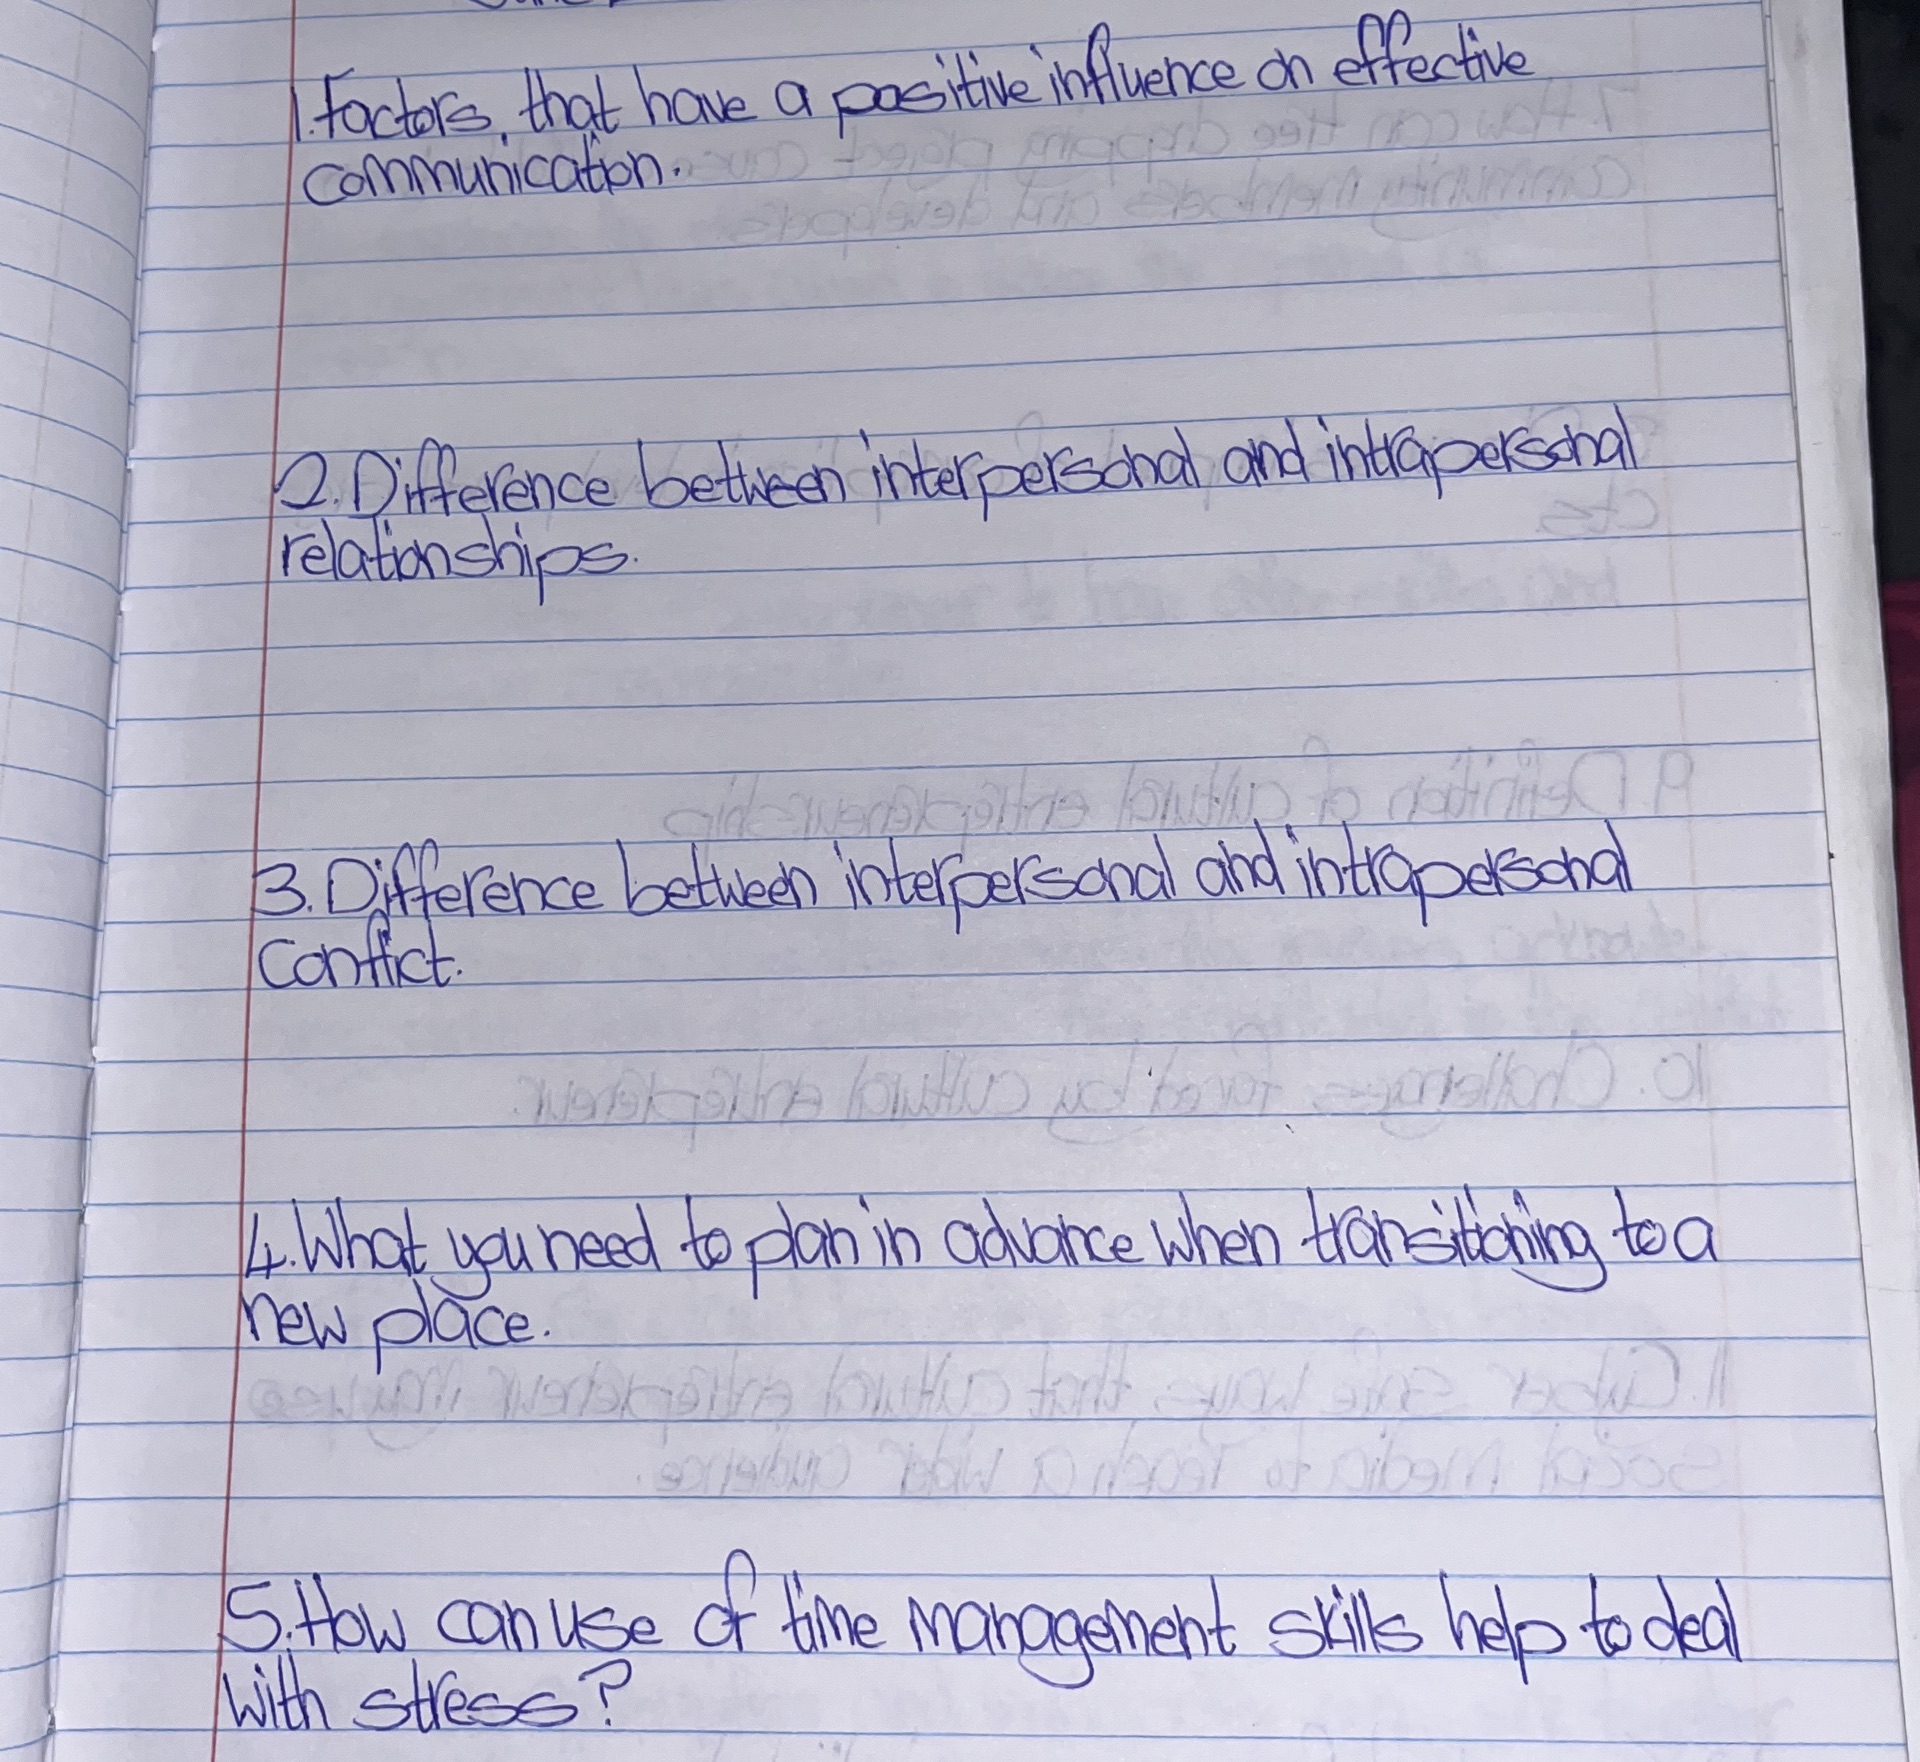 1. Factors, that have a positive influence on effective
communication.
2. Difference between interpersonal and intrapersonal
relationships.
3. Difference between interpersonal and intrapersonal
Conflict.
4. What you need to plan in advance when transitioning to a
new place.
5. How can use of time management skills help to deal
with stress?